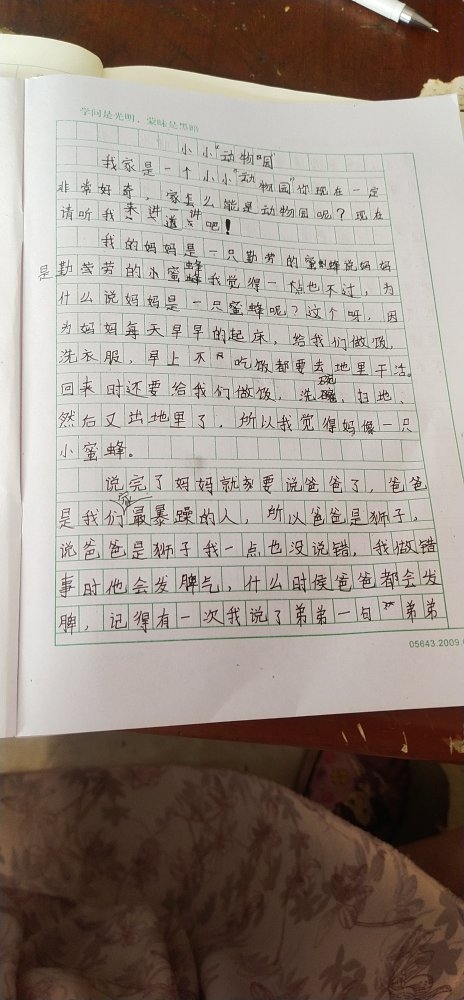 学问是光明，蒙昧是黑暗
小小“动物园”
我家是一个小小“动物园”你现在一定
非常好奇，家怎么能是动物园呢？现在
请听我来讲讲道道吧！
我的妈妈是一只勤劳的蜜蜂说妈妈
是勤劳的小蜜蜂我觉得一点也不过，为
什么说妈妈是一只蜜蜂呢？这个呀，因
为妈妈每天早早的起床，给我们做饭，
洗衣服，早上不吃饭都要去地里干活。
回来时还要给我们做饭，洗碗，扫地、
然后又出地里了，所以我觉得妈像一只
小蜜蜂。
说完了妈妈就要说爸爸了，爸爸
是我们家最暴躁的人，所以爸爸是狮子，
说爸爸是狮子我一点也没说错，我做错
事时他会发脾气，什么时侯爸爸都会发
脾，记得有一次我说了弟弟一句弟弟
05643.2009.